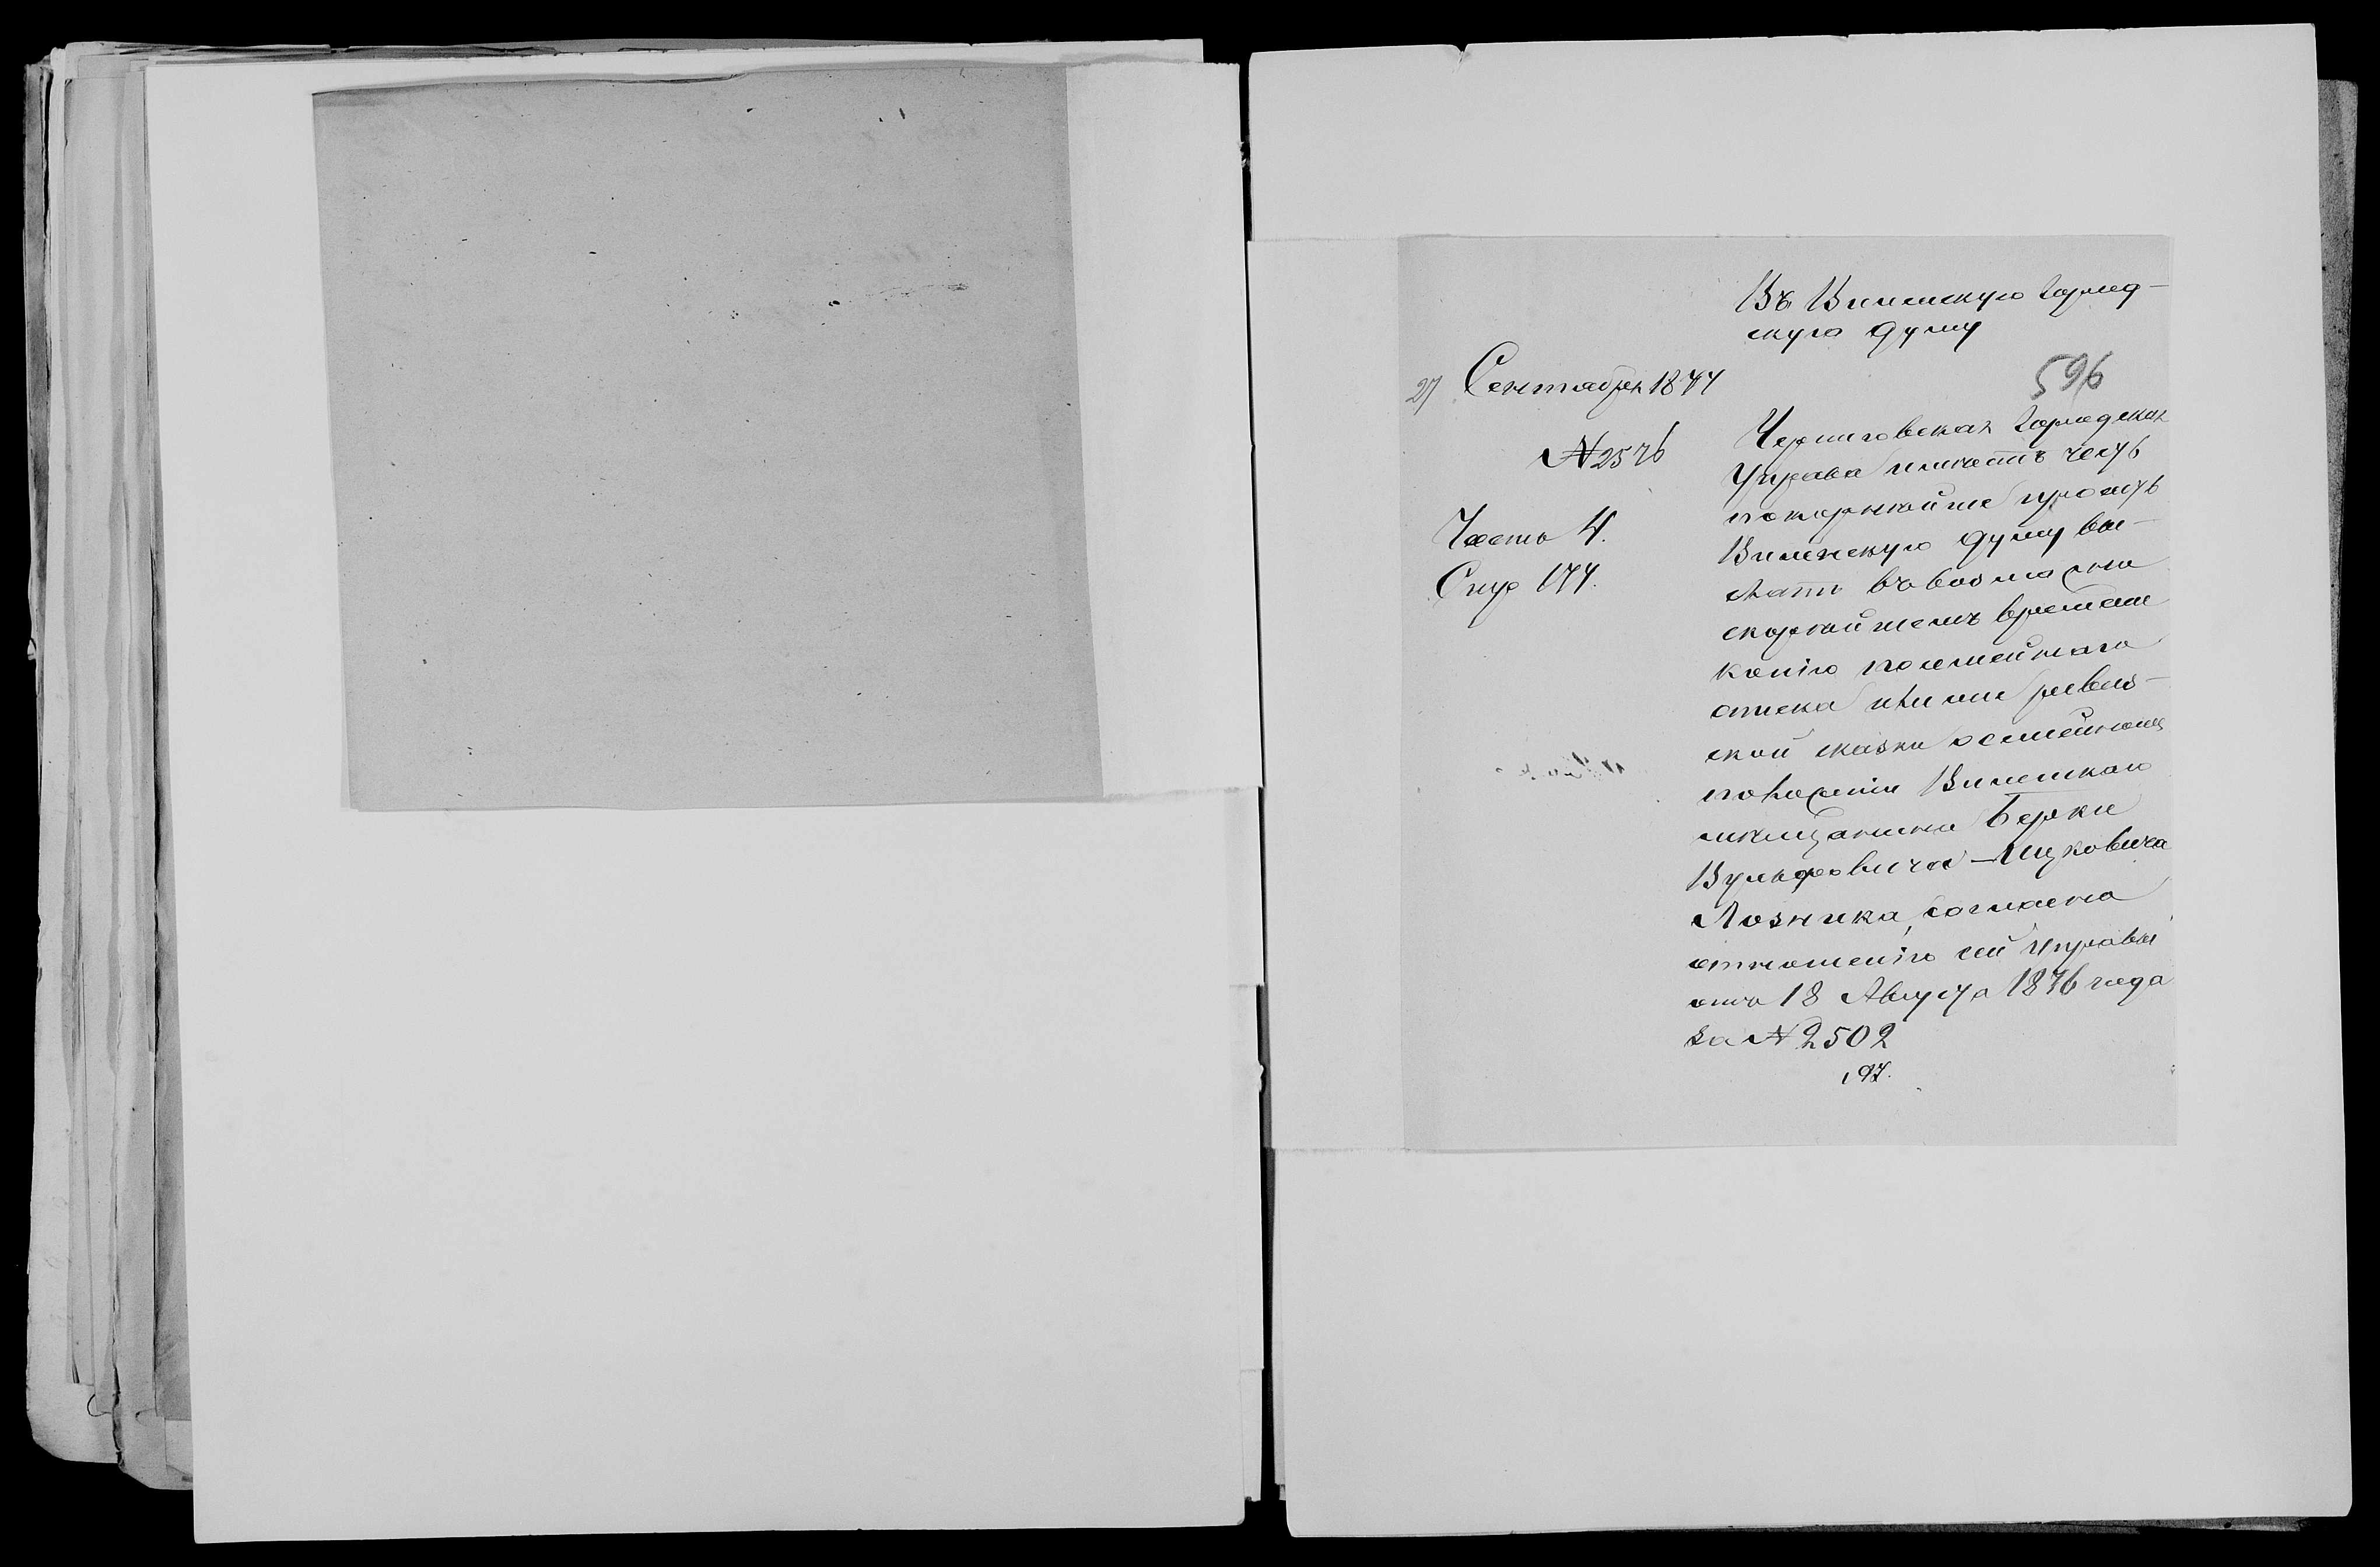 Въ Виленскую Город-
скую Думу
596
27 Сентября 1877
№ 2576
Часть 4.
Стр 174.
Черниговская Городская
Управа имѣетъ честь
покорнѣйше просить
Виленскую Думу вы-
слать въ возможно
скорѣйшемъ времени
копію посемейнаго
списка или ревиз-
ской сказки о семейномъ
положеніи Виленскаго
мѣщанина Берки
Вульфовича-Ицковича
Лозника, согласно
отношенію сей Управы
отъ 18 Августа 1876 года
за № 2502